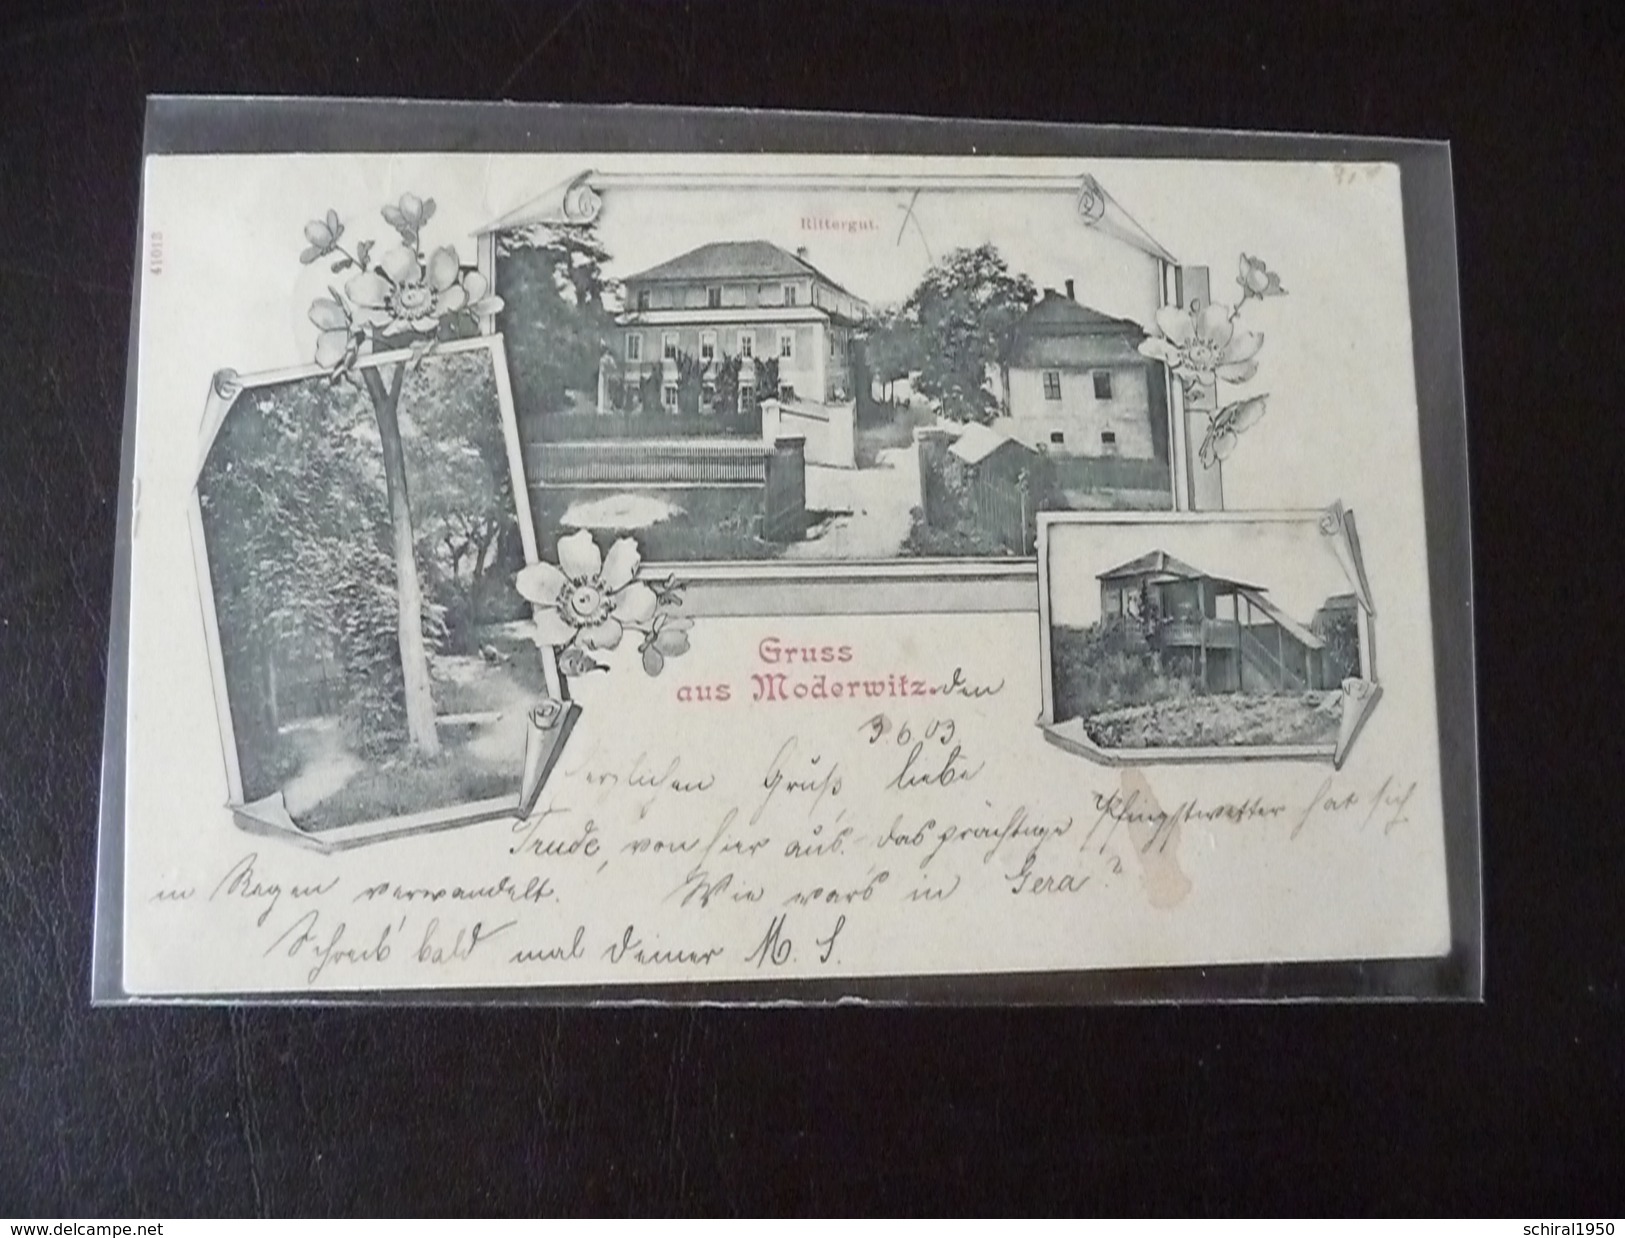 41013
Rittergut.
Gruss
aus Moderwitz. den
3.6.03.
Herzlichen Gruß liebe
Trude, von hier aus. das prächtige Pfingstwetter hat sich
in Regen verwandelt. Wie wars in Gera?
Schreib' bald mal Deiner M. S.
www.delcampe.net
schiral1950